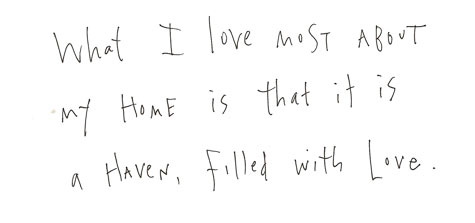 What I love MOST ABOUT
MY HOME is that it is
a HAVEN, filled with Love.